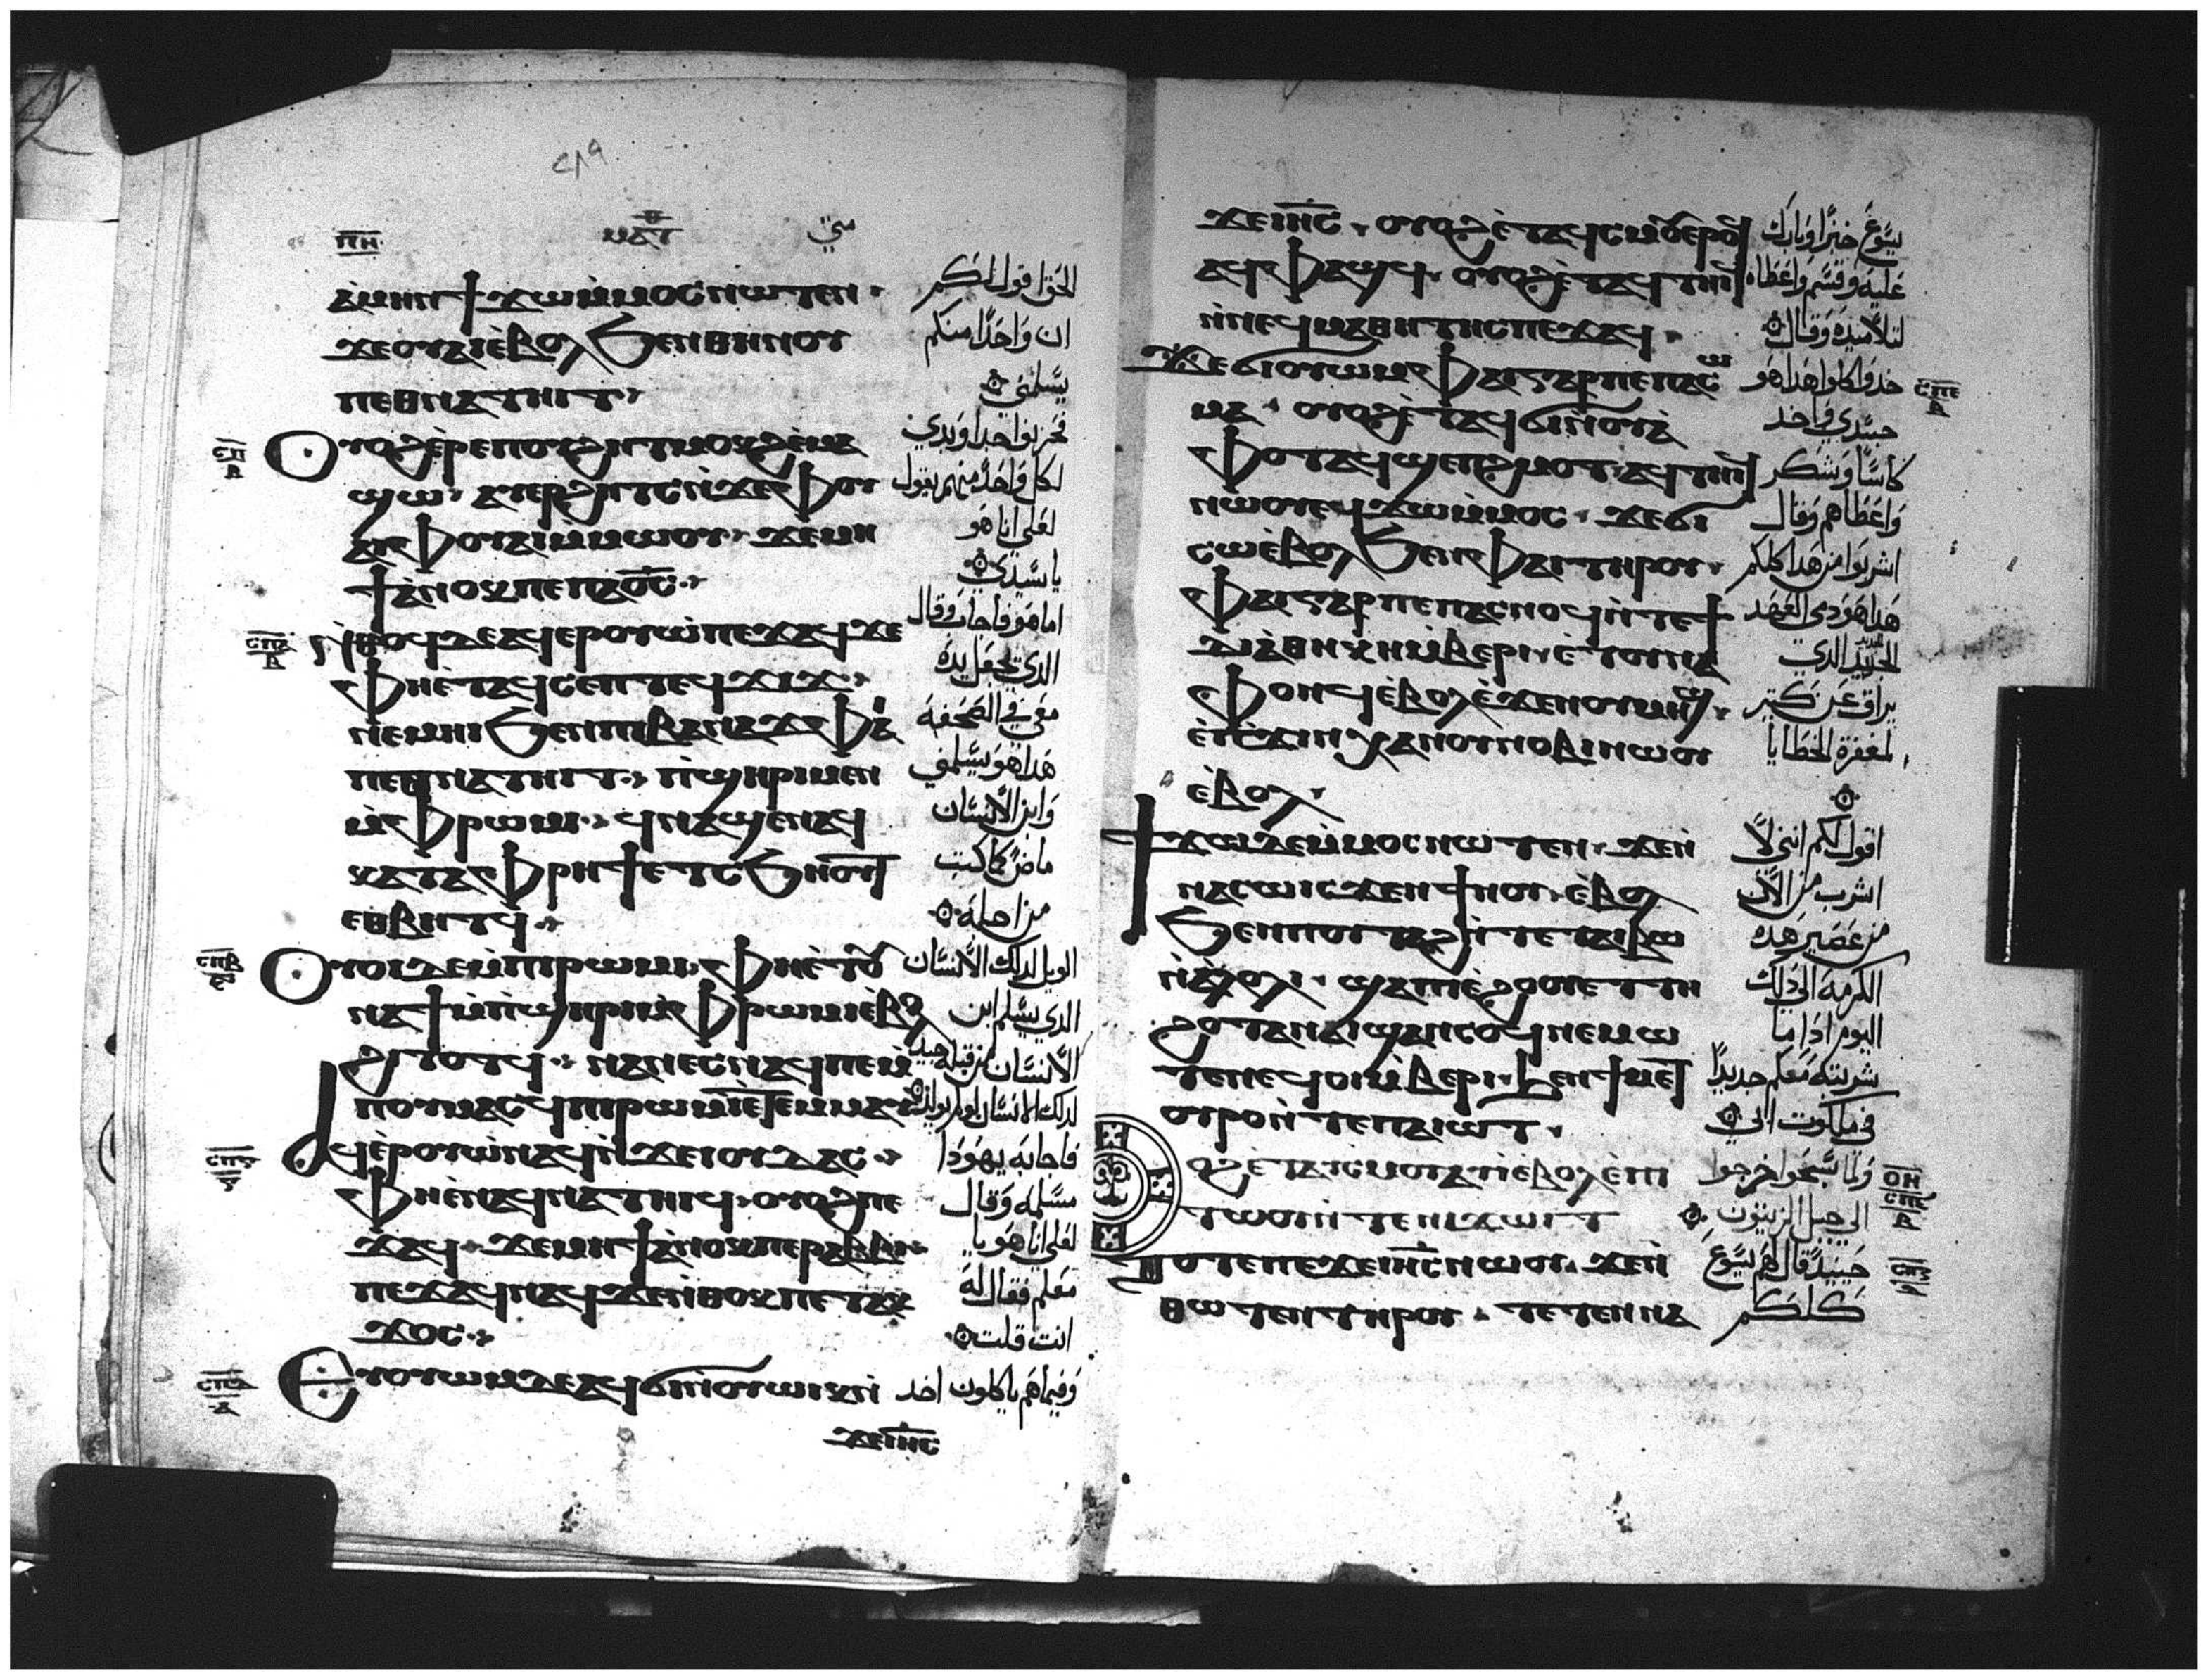 ⲥⲁⲑ
ⲡⲏ
ⲙⲁⲧ
متي
ⲁⲙⲏⲛϯϫⲱⲙⲙⲟⲥⲛⲱⲧⲉⲛ·
ϫⲉⲟⲩⲁⲓⲉⲃⲟⲗϧⲉⲛⲑⲏⲛⲟⲩ
ⲡⲉⲑⲛⲁⲧⲏⲓⲧ·
ⲟⲩⲟϩⲉⲣⲉⲡⲟⲩϩⲏⲧⲙⲟⲕϩⲉⲙⲁ
ϣⲱ· ⲁⲩⲉⲣϩⲏⲧⲥⲛϫⲉⲫⲟⲩ
ⲁⲓⲫⲟⲩⲁⲓⲙⲙⲱⲟⲩ· ϫⲉⲙⲏ
ϯⲁⲛⲟⲕⲡⲉⲡⲁⲟ̅ⲥ̅·
ⲛⲑⲟϥⲇⲉⲁϥⲉⲣⲟⲩⲱⲡⲉϫⲁϥϫⲉ
ⲫⲏⲉⲧⲁϥⲥⲉⲡⲧⲉϥϫⲓϫ·
ⲛⲉⲙⲏⲓϧⲉⲛⲡⲓⲃⲁⲛⲁϫⲫⲁⲓ
ⲡⲉⲑⲛⲁⲧⲏⲓⲧ· ⲡϣⲏⲣⲓⲙⲉⲛ
ⲙⲫⲣⲱⲙⲓ· ϥⲛⲁϣⲉⲛⲁϥ
ⲕⲁⲧⲁⲫⲣⲏϯⲉⲧⲥϧⲏⲟⲩⲧ
ⲉⲑⲃⲏⲧϥ·
ⲟⲩⲟⲓⲇⲉⲙⲡⲓⲣⲱⲙⲓ· ⲫⲏⲉⲧⲟⲩ
ⲛⲁϯⲙⲡϣⲏⲣⲓⲙⲫⲣⲱⲙⲓⲉⲃⲟⲗ
ϩⲓⲧⲟⲧϥ· ⲛⲁⲛⲉⲥⲛⲁϥⲡⲉⲙ
ⲡⲟⲩⲙⲁⲥϥⲡⲓⲣⲱⲙⲓⲉⲧⲉⲙⲙⲁⲩ
ⲁϥⲉⲣⲟⲩⲱⲛⲁϥⲛϫⲉⲓⲟⲩⲇⲁⲥ·
ⲫⲏⲉⲛⲁϥⲛⲁⲧⲏⲓϥ· ⲟⲩⲟϩⲡⲉ
ϫⲁϥ· ϫⲉⲙⲏϯⲁⲛⲟⲕⲡⲉⲣⲁⲃⲃⲓ·
ⲡⲉϫⲁϥⲛⲁϥϫⲉⲛⲑⲟⲕⲡⲉⲧⲁⲕ
ϫⲟⲥ·
ⲉⲩⲟⲩⲱⲙⲇⲉⲁϥϭⲓⲛⲟⲩⲱⲓⲕⲛ
ϫⲉⲓⲏ̅ⲥ̅
الحق اقول لكم
ان واحدا منكم
يسلمني
فحزنوا جدا وبدي
لكل واحد منهم يقول
لعلي انا هو
يا سيدي
اما هو فاجاب وقال
الذي يجعل يده
معي في الصحفة
هذا هو يسلمني
وابن الانسان
ماض كما كتب
من اجله
الويل لذلك الانسان
الذي يسلم ابن
الانسان من قبله جيد
لذلك الانسان لو لم يولد
فاجابه يهودا
مسلمه وقال
لعلي انا هو يا
معلم فقال له
انت قلت
وفيما هم ياكلون اخد
ϫⲉⲓⲏ̅ⲥ̅· ⲟⲩⲟϩⲉⲧⲁϥⲥⲙⲟⲩⲉⲣⲟϥ
ⲁϥⲫⲁϣϥ· ⲟⲩⲟϩⲉⲧⲁϥⲧⲏⲓϥ
ⲛⲛⲉϥⲙⲁⲑⲏⲧⲏⲥⲡⲉϫⲁϥ·
ϫⲉϭⲓⲟⲩⲱⲙⲫⲁⲓⲅⲁⲣⲡⲉⲡⲁⲥⲱ
ⲙⲁ· ⲟⲩⲟϩⲉⲧⲁϥϭⲓⲛⲟⲩⲁ
ⲫⲟⲧⲁϥϣⲉⲡϩⲙⲟⲧ·ⲁϥⲧⲏⲓϥ
ⲛⲱⲟⲩⲉϥϫⲱⲙⲙⲟⲥ· ϫⲉϭⲓ
ⲥⲱⲉⲃⲟⲗϧⲉⲛⲫⲁⲓⲧⲏⲣⲟⲩ·
ⲫⲁⲓⲅⲁⲣⲡⲉⲡⲁⲥⲛⲟϥⲛⲧⲉϯ
ⲇⲓⲁⲑⲏⲕⲏⲙⲃⲉⲣⲓ·ⲉⲧⲟⲩⲛⲁ
ⲫⲟⲛϥⲉⲃⲟⲗⲉϫⲉⲛⲟⲩⲙⲏϣ·
ⲉⲡϫⲓⲛⲭⲁⲛⲟⲩⲛⲟⲃⲓⲛⲱⲟⲩ
ⲉⲃⲟⲗ·
ϯϫⲱⲇⲉⲙⲙⲟⲥⲛⲱⲧⲉⲛ· ϫⲉⲛ
ⲛⲁⲥⲱⲓⲥϫⲉⲛϯⲛⲟⲩ· ⲉⲃⲟⲗ
ϧⲉⲛⲡⲟⲩⲧⲁϩⲛⲧⲉⲧⲁⲓⲃⲱ
ⲛⲁⲗⲟⲗⲓ· ϣⲁⲡⲓⲉϩⲟⲟⲩⲉⲧⲧⲏ
ϩⲟⲧⲁⲛⲁⲓϣⲁⲛⲥⲟϥⲛⲉⲙⲱ
ⲧⲉⲛⲉϥⲟⲓⲙⲃⲉⲣⲓ·ϧⲉⲛϯⲙⲉⲧ
ⲟⲩⲣⲟⲛⲧⲉⲡⲁⲓⲱⲧ·
ⲟϩⲉⲧⲁⲩⲥⲙⲟⲩⲁⲩⲓⲉⲃⲟⲗⲉⲡⲓ
ⲧⲱⲟⲩⲛⲧⲉⲛⲓϫⲱⲓⲧ
ⲧⲟⲧⲉⲡⲉϫⲉⲓⲏ̅ⲥ̅ⲛⲱⲟⲩ· ϫⲉⲛ
ⲑⲱⲧⲉⲛⲧⲏⲣⲟⲩ· ⲧⲉⲧⲉⲛⲛⲁ
يسوع خبزا وبارك
عليه وقسم واعطاه
لتلاميذه وقال
خدوا كلوا هذا هو
جسدي واخد
كاسا وشكر
واعطاهم وقال
اشربوا من هذا كلكم
هذا هو دمي العهد
الجديد الذي
يراق عن كثير
لمغفرة الخطايا
اقول لكم انني لا
اشرب من الان
من عصير هذه
الكرمة الي ذلك
اليوم اذا ما
شربته معكم جديدا
في ملكوت ابي
ولما سبحوا خرجوا
الي جبل الزيتون
حينيذ قال لهم يسوع
كلكم